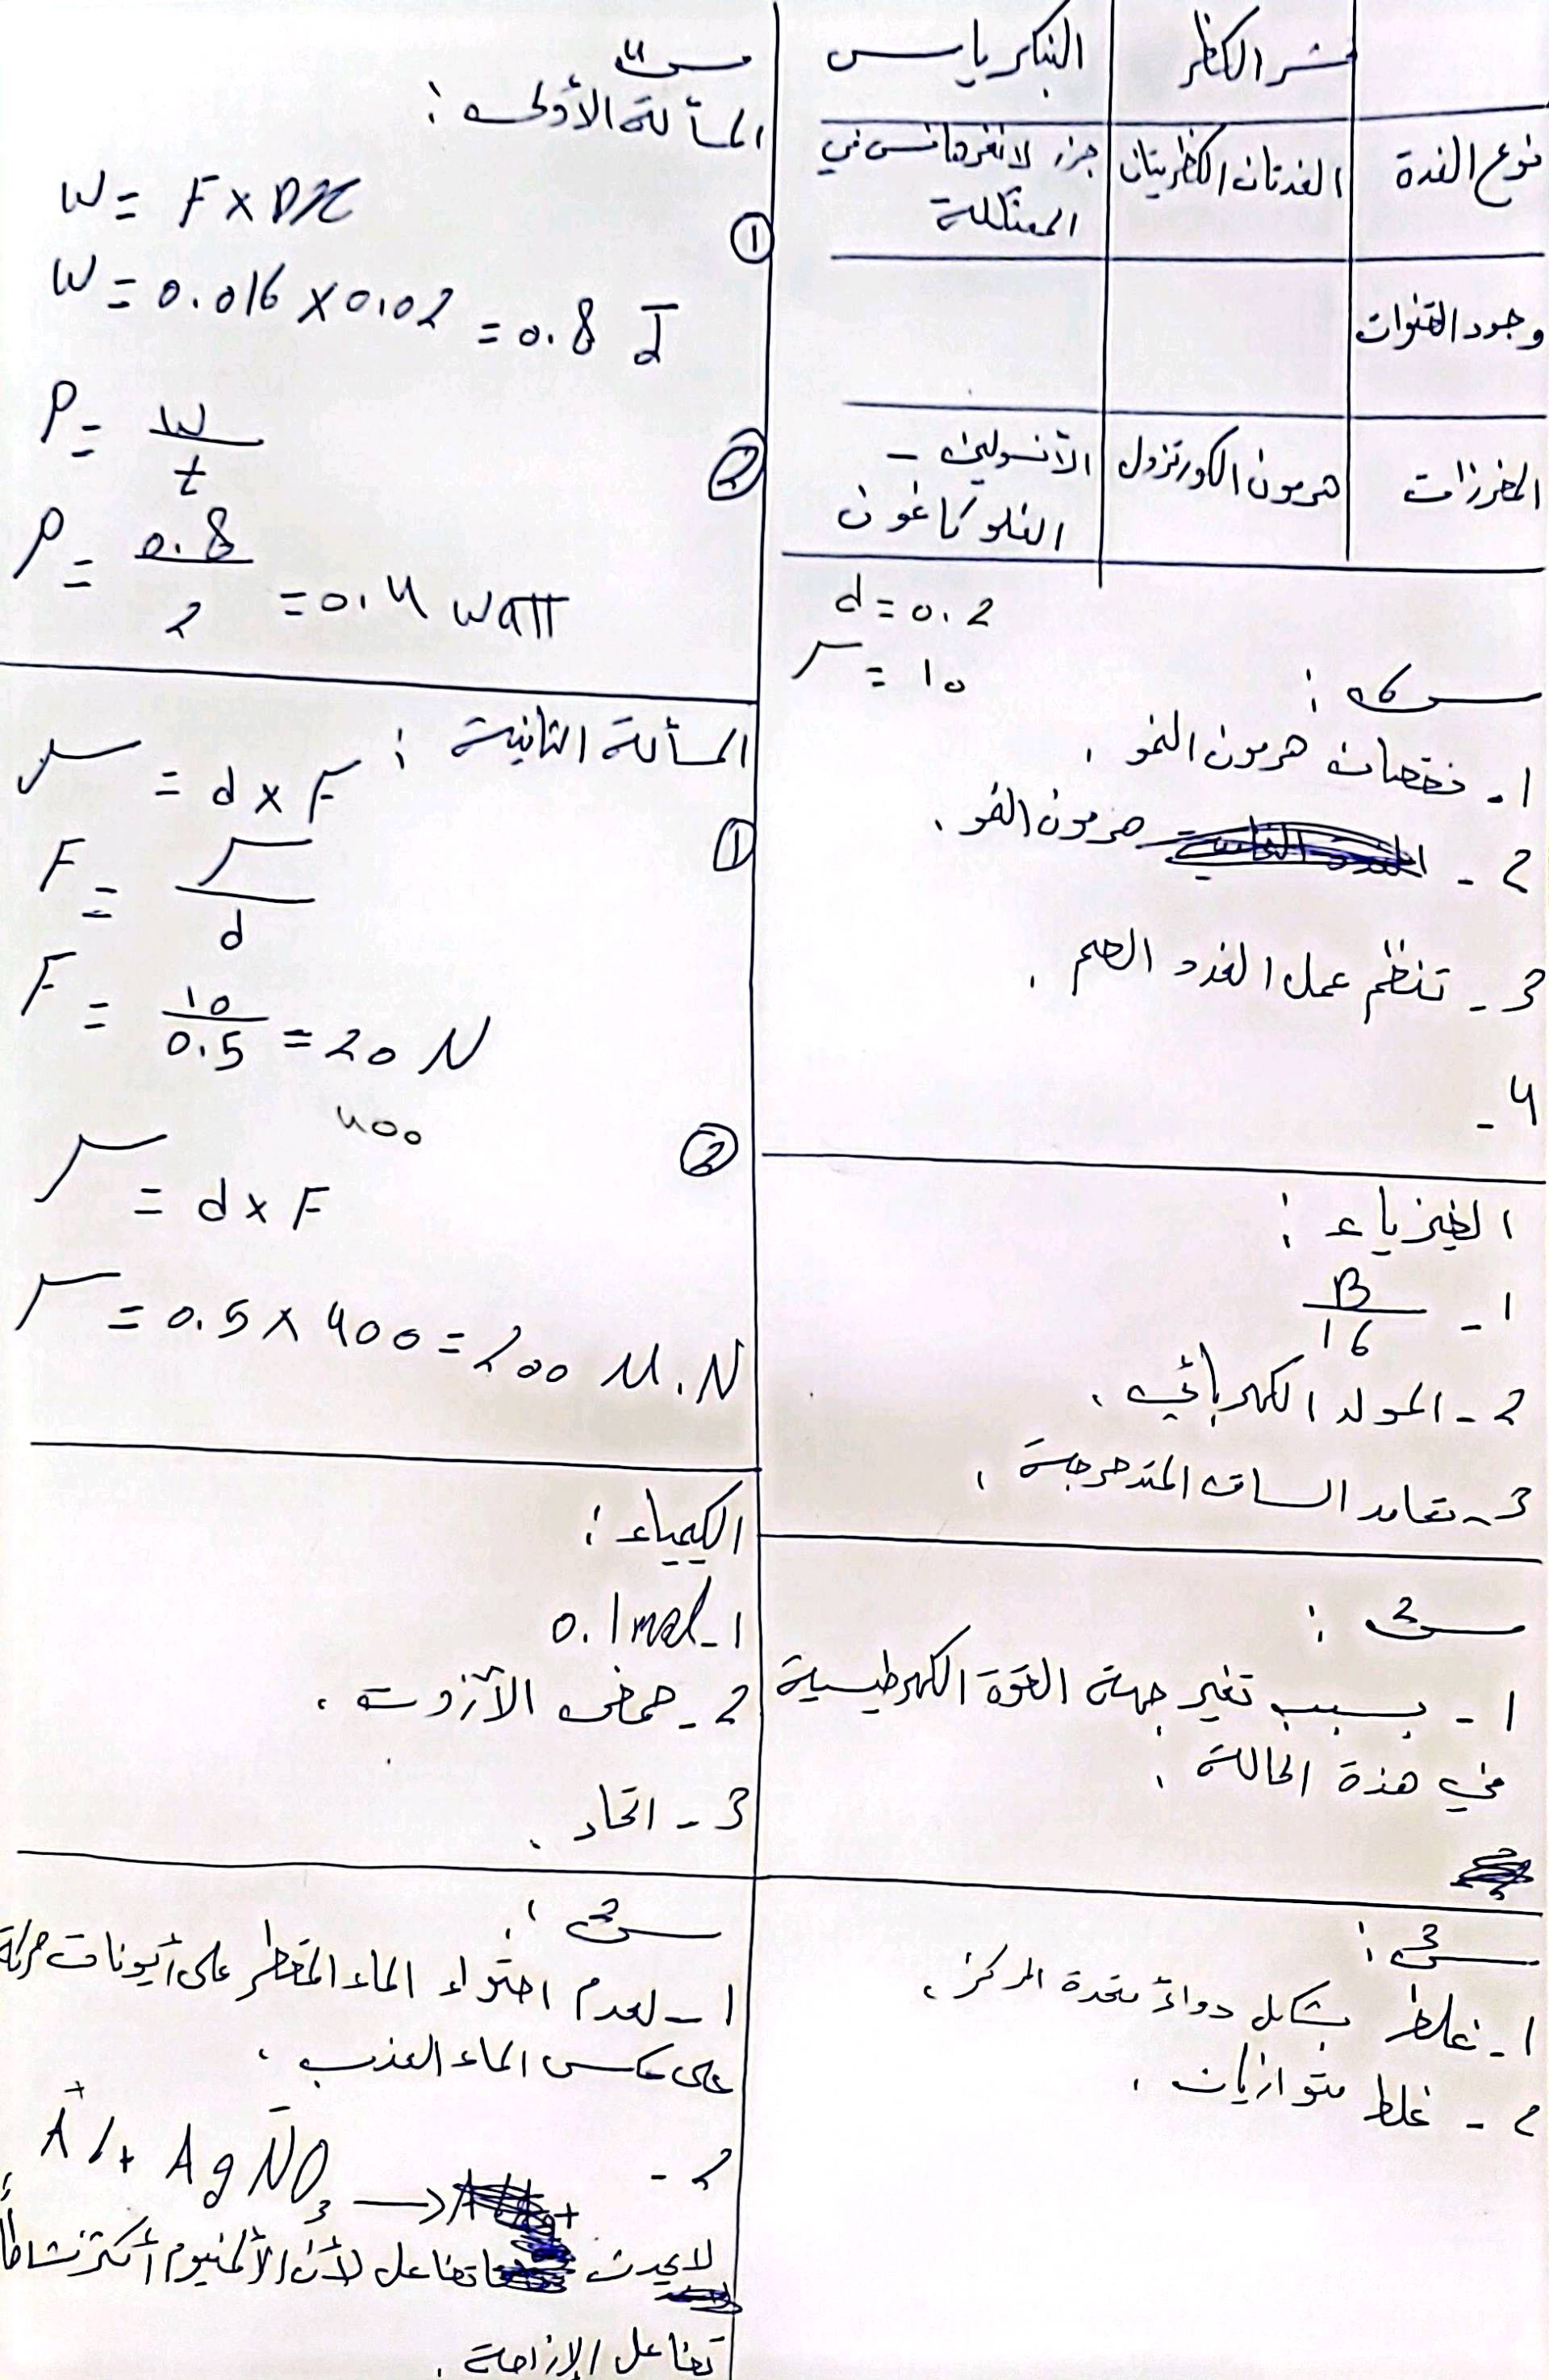 قشر الكظر | البنكرياس
نوع الغدة | الغدتان الكظريتان | جزر لانغرهانس في المعثكلة
وجود القنوات
المفرزات | هرمون الكورتزول | الأنسولين - الغلوكاغون
d = 0.2
Γ = 10
س6 :
1- نقصان هرمون النمو .
2- هرمون النمو .
3- تنظم عمل الغدد الصم .
4-
الفيزياء :
1- B/16
2- المولد الكهربائي .
3- تعامد الساق المتدحرجة .
س2 :
1- بسبب تغير جهة القوة الكهرطيسية
في هذة الحالة .
س3 :
1- غلط بشكل دوائر متحدة المركز .
2- غلط متوازيات .
س4
المسألة الأولى :
① W = F × Δx
W = 0.016 × 0.02 = 0.8 J
② P = W/t
P = 0.8/2 = 0.4 watt
المسألة الثانية :
① Γ = d × F
F = Γ/d
F = 10/0.5 = 20 N
400
② Γ = d × F
Γ = 0.5 × 400 = 200 M.N
الكيمياء :
1- 0.1 mol
2- حمض الآزوت .
3- اتحاد .
س2 :
1- لعدم احتواء الماء المقطر على أيونات حركة
على عكس الماء العذب .
2- Al⁺ + AgNO₃⁻ → +
لا يحدث تفاعل لأن الألمنيوم أكثر نشاطاً
تفاعل الإزاحة .